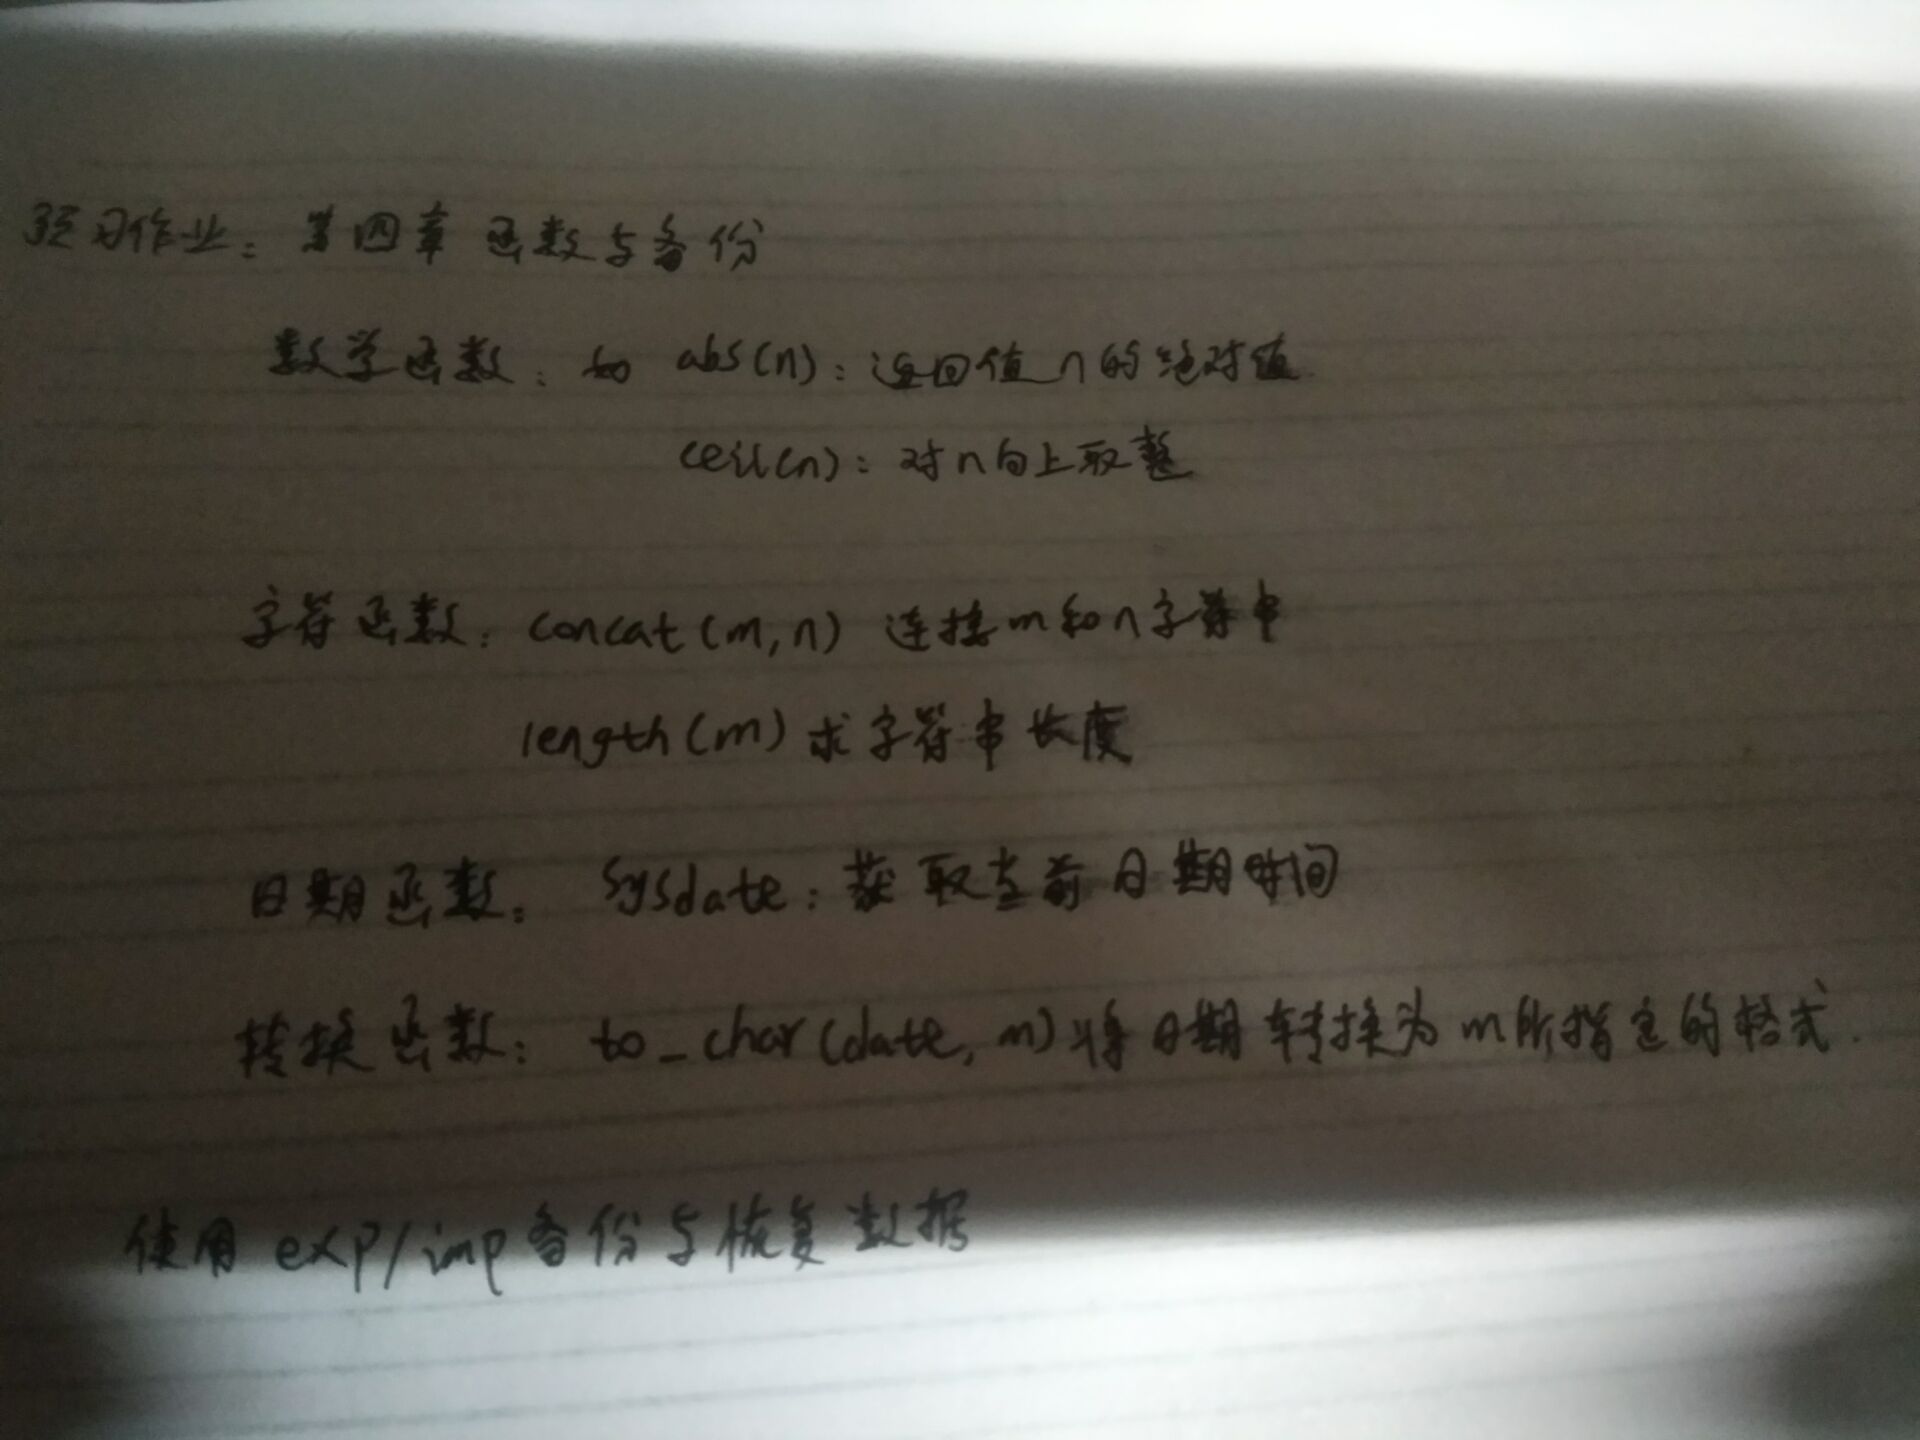 预习作业：第四章 函数与备份
数学函数：如 abs(n)：返回值n的绝对值.
ceil(n)：对n向上取整
字符函数：concat(m,n) 连接m和n字符串
length(m) 求字符串长度
日期函数： sysdate：获取当前日期时间
转换函数： to_char(date, m) 将日期转换为m所指定的格式.
使用 exp/imp 备份与恢复数据